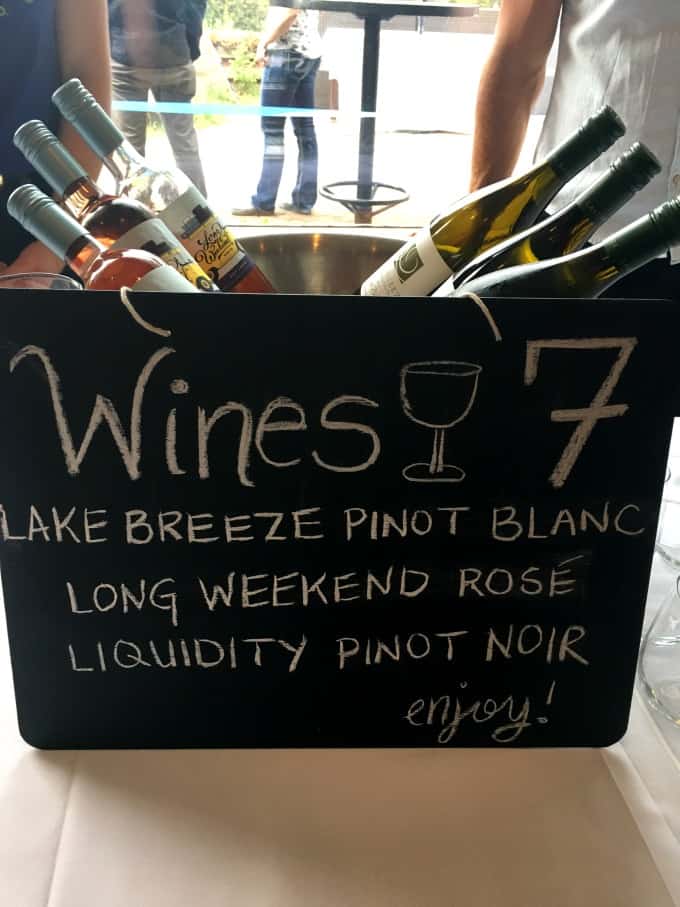 Wines 7
LAKE BREEZE PINOT BLANC
LONG WEEKEND ROSÉ
LIQUIDITY PINOT NOIR
enjoy!